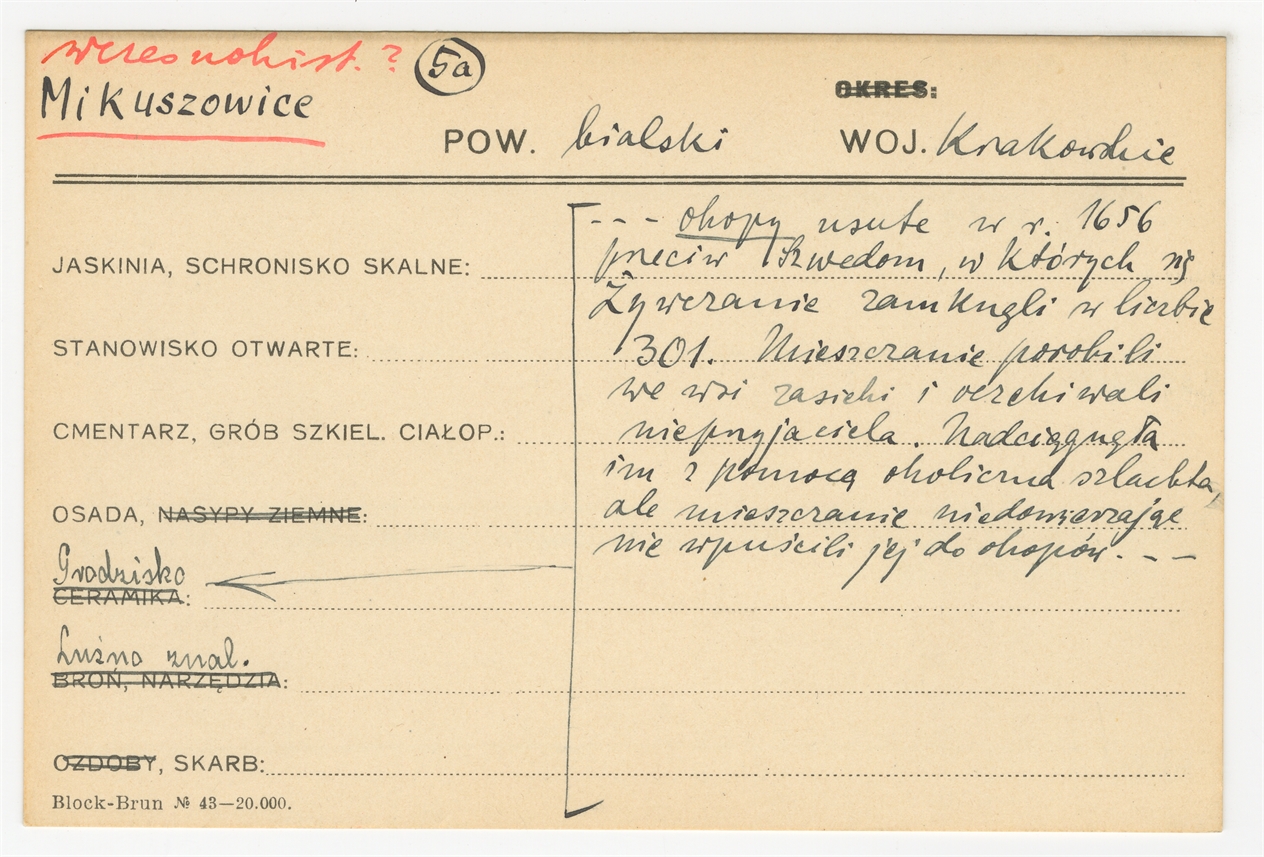 wczesnohist. ?
5a
Mikuszowice
OKRES:
POW. bialski WOJ. Krakowskie
--- okopy usute w r. 1656
przeciw Szwedom, w których się
Żywczanie zamknęli w liczbie
301. Mieszczanie porobili
we wsi zasieki i oczekiwali
nieprzyjaciela. Nadciągnęła
im z pomocą okoliczna szlachta,
ale mieszczanie niedowierzając
nie wpuścili jej do okopów. - -
JASKINIA, SCHRONISKO SKALNE:
STANOWISKO OTWARTE:
CMENTARZ, GRÓB SZKIEL. CIAŁOP.:
OSADA, NASYPY ZIEMNE:
Grodzisko
CERAMIKA:
Luźno znal.
BROŃ, NARZĘDZIA:
OZDOBY, SKARB:
Block-Brun № 43—20.000.